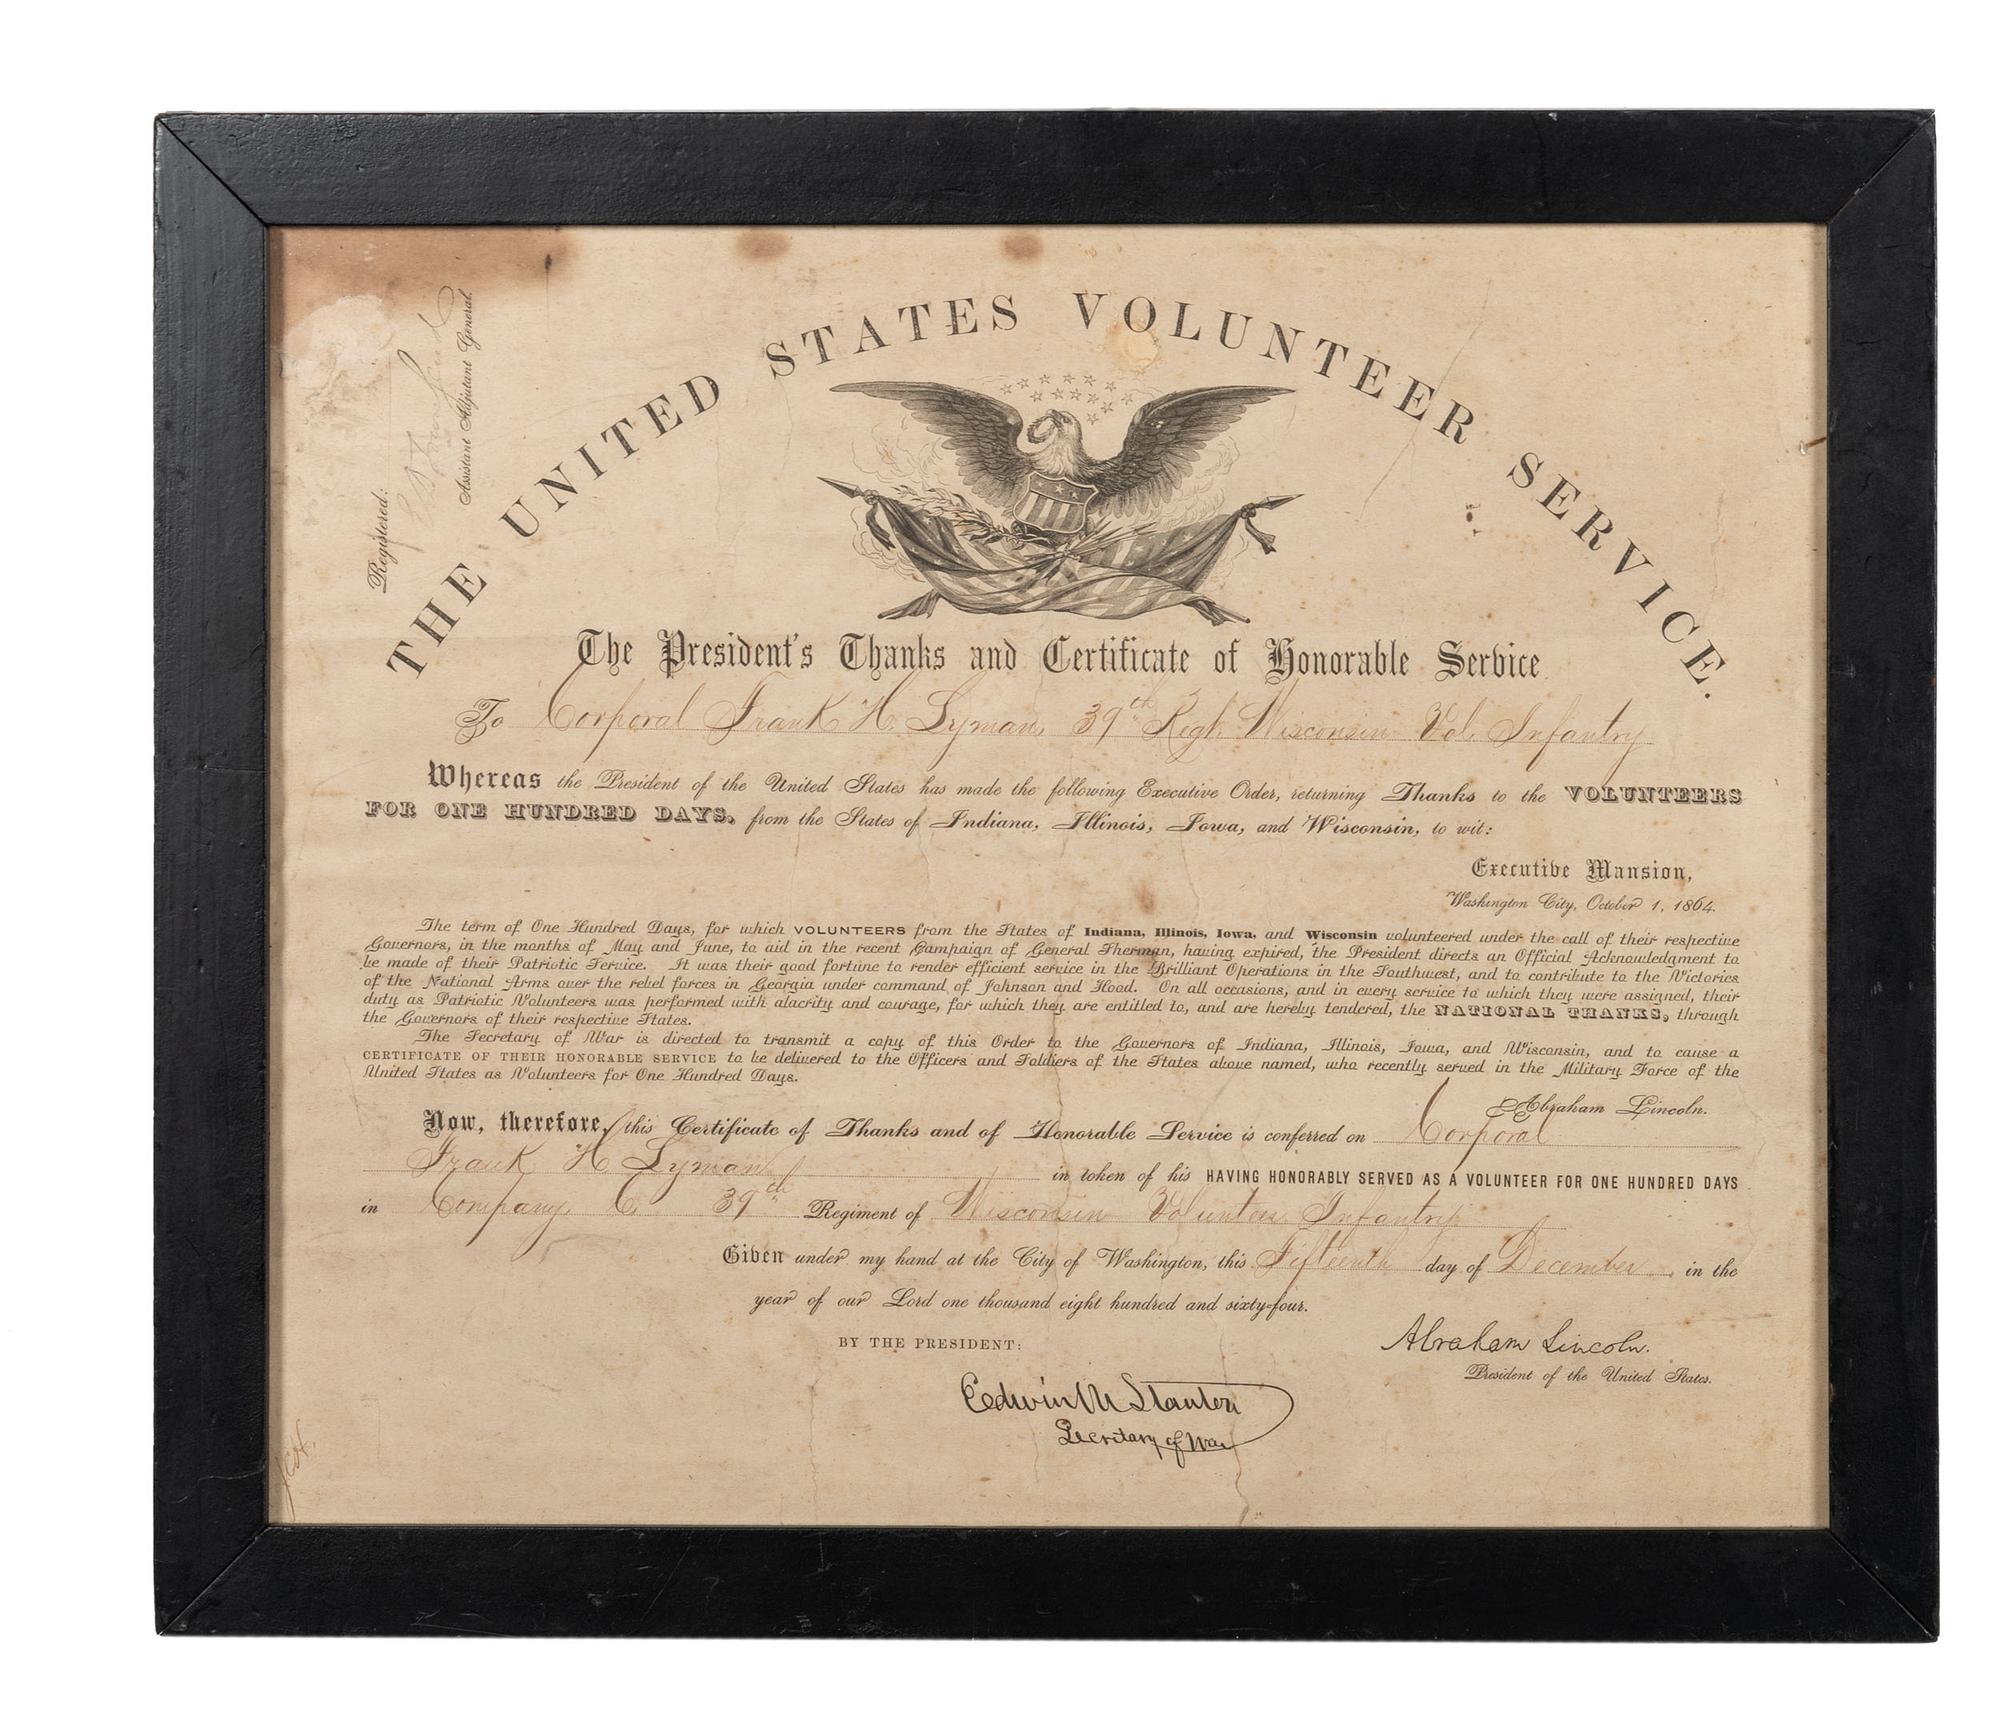 THE UNITED STATES VOLUNTEER SERVICE.
Registered:
Assistant Adjutant General.
The President's Thanks and Certificate of Honorable Service
To Corporal Frank H. Lyman, 39th Regt. Wisconsin Vol. Infantry
Whereas the President of the United States has made the following Executive Order, returning Thanks to the VOLUNTEERS
FOR ONE HUNDRED DAYS, from the States of Indiana, Illinois, Iowa, and Wisconsin, to wit:
Executive Mansion,
Washington City, October 1, 1864.
The term of One Hundred Days, for which VOLUNTEERS from the States of Indiana, Illinois, Iowa, and Wisconsin volunteered under the call of their respective
Governors, in the months of May and June, to aid in the recent Campaign of General Sherman, having expired, the President directs an Official Acknowledgment to
be made of their Patriotic Service. It was their good fortune to render efficient service in the Brilliant Operations in the Southwest, and to contribute to the Victories
of the National Arms over the rebel forces in Georgia under command of Johnson and Hood. On all occasions, and in every service to which they were assigned, their
duty as Patriotic Volunteers was performed with alacrity and courage, for which they are entitled to, and are hereby tendered, the NATIONAL THANKS, through
the Governors of their respective States.
The Secretary of War is directed to transmit a copy of this Order to the Governors of Indiana, Illinois, Iowa, and Wisconsin, and to cause a
CERTIFICATE OF THEIR HONORABLE SERVICE to be delivered to the Officers and Soldiers of the States above named, who recently served in the Military Force of the
United States as Volunteers for One Hundred Days.
Abraham Lincoln.
Now, therefore, this Certificate of Thanks and of Honorable Service is conferred on Corporal
Frank H Lyman in token of his HAVING HONORABLY SERVED AS A VOLUNTEER FOR ONE HUNDRED DAYS
in Company C. 39th Regiment of Wisconsin Volunteer Infantry
Given under my hand at the City of Washington, this Fifteenth day of December, in the
year of our Lord one thousand eight hundred and sixty-four.
BY THE PRESIDENT:
Abraham Lincoln.
President of the United States.
Edwin M Stanton
Secretary of War